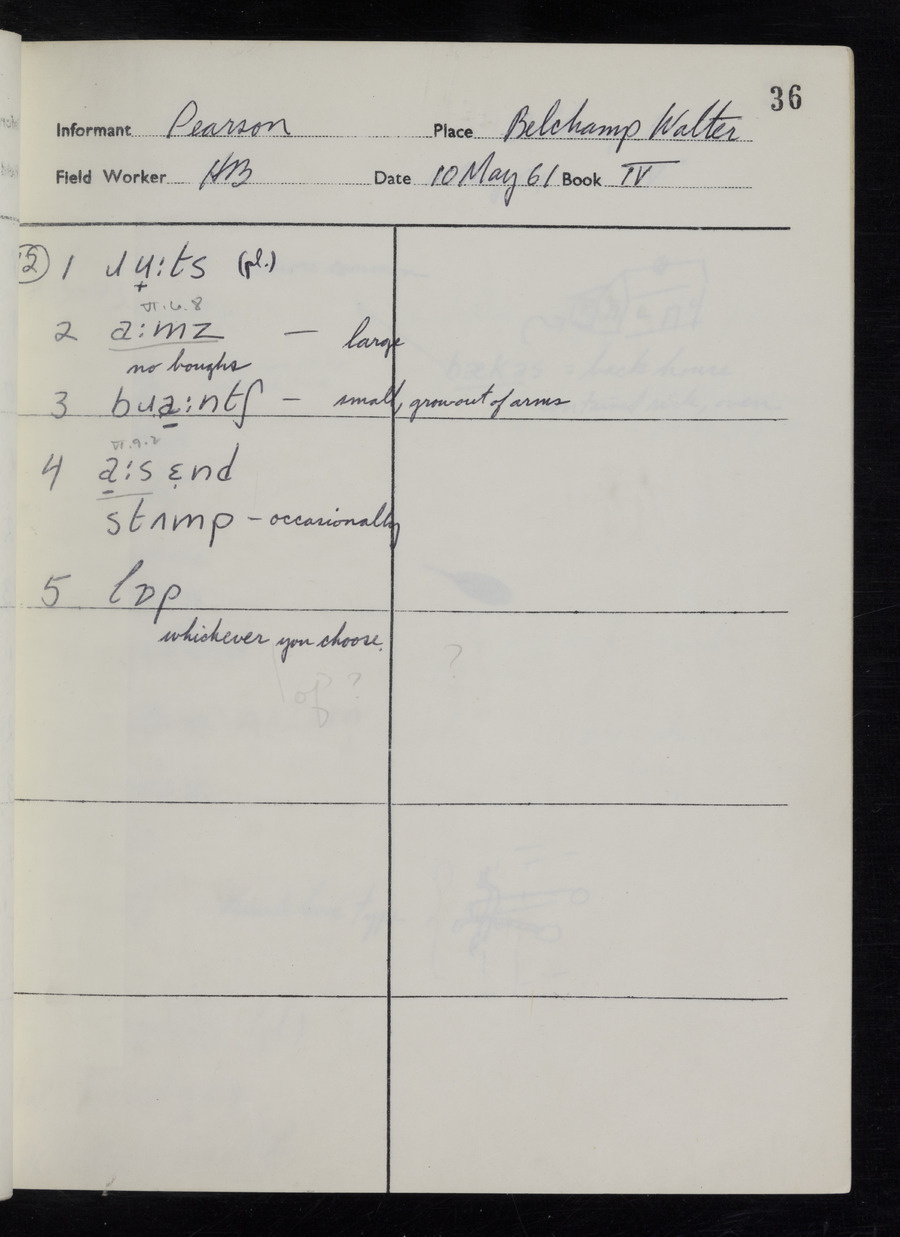 36
Informant Pearson Place Belchamp Walter
Field Worker HB Date 10 May 61 Book IV
12 1 ɹʉ̟:ts (pl.)
VI.6.8
2 a:mz — large
no boughs
3 bɹa̠:ntʃ — small, grow out of arms
VI.9.2
4 a̠:s ɛ̣nd
stʌmp – occasionally
5 lɒp
whichever you choose.
of? ?